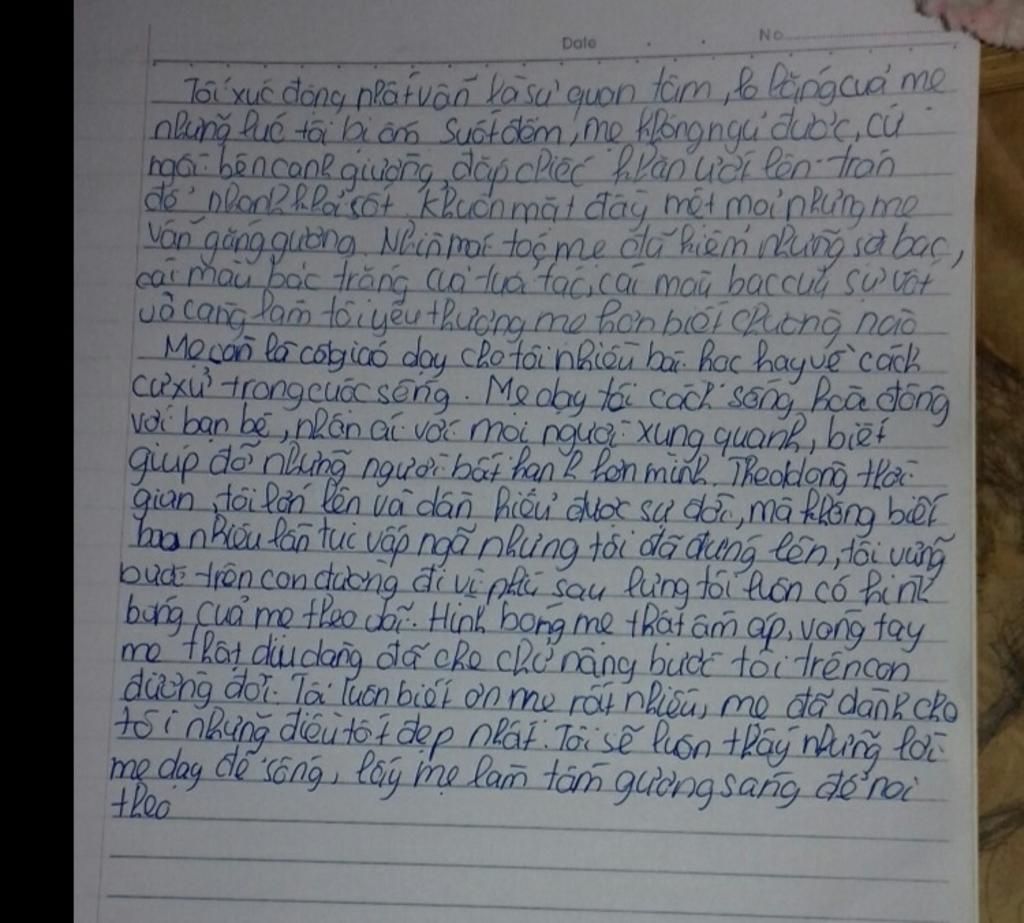 Date No
Tôi xúc động nhất vẫn là sự quan tâm, lo lắng của mẹ
những lúc tôi bị ốm Suốt đêm, mẹ không ngủ được, cứ
ngồi bên cạnh giường đắp chiếc khăn ướt lên trán
để nhanh khỏi sốt. Khuôn mặt đầy mệt mỏi nhưng mẹ
vẫn gắng gượng. Nhìn mái tóc mẹ đã hiếm những sợi bạc,
cái màu bạc trắng của tuổi tác, cái màu bạc của sự vất
vả càng làm tôi yêu thương mẹ hơn biết chường nào
Mẹ còn là cô giáo dạy cho tôi nhiều bài học hay về cách
cư xử trong cuộc sống. Mẹ dạy tôi cách sống hoà đồng
với bạn bè, nhân ái với mọi người xung quanh, biết
giúp đỡ những người bất hạnh hơn mình. Theo dòng thời
gian, tôi lớn lên và dần hiểu được sự đời, mà không biết
bao nhiêu lần tui vấp ngã nhưng tôi đã đứng lên, tôi vững
bước trên con đường đi vì phía sau lưng tôi luôn có hình
bóng của mẹ theo dõi. Hình bóng mẹ thật ấm áp, vòng tay
mẹ thật dịu dàng đã che chở nâng bước tôi trên con
đường đời. Tôi luôn biết ơn mẹ rất nhiều, mẹ đã dành cho
tôi những điều tốt đẹp nhất. Tôi sẽ luôn thấy những lời
mẹ dạy để sống, lấy mẹ làm tấm gương sáng để noi
theo